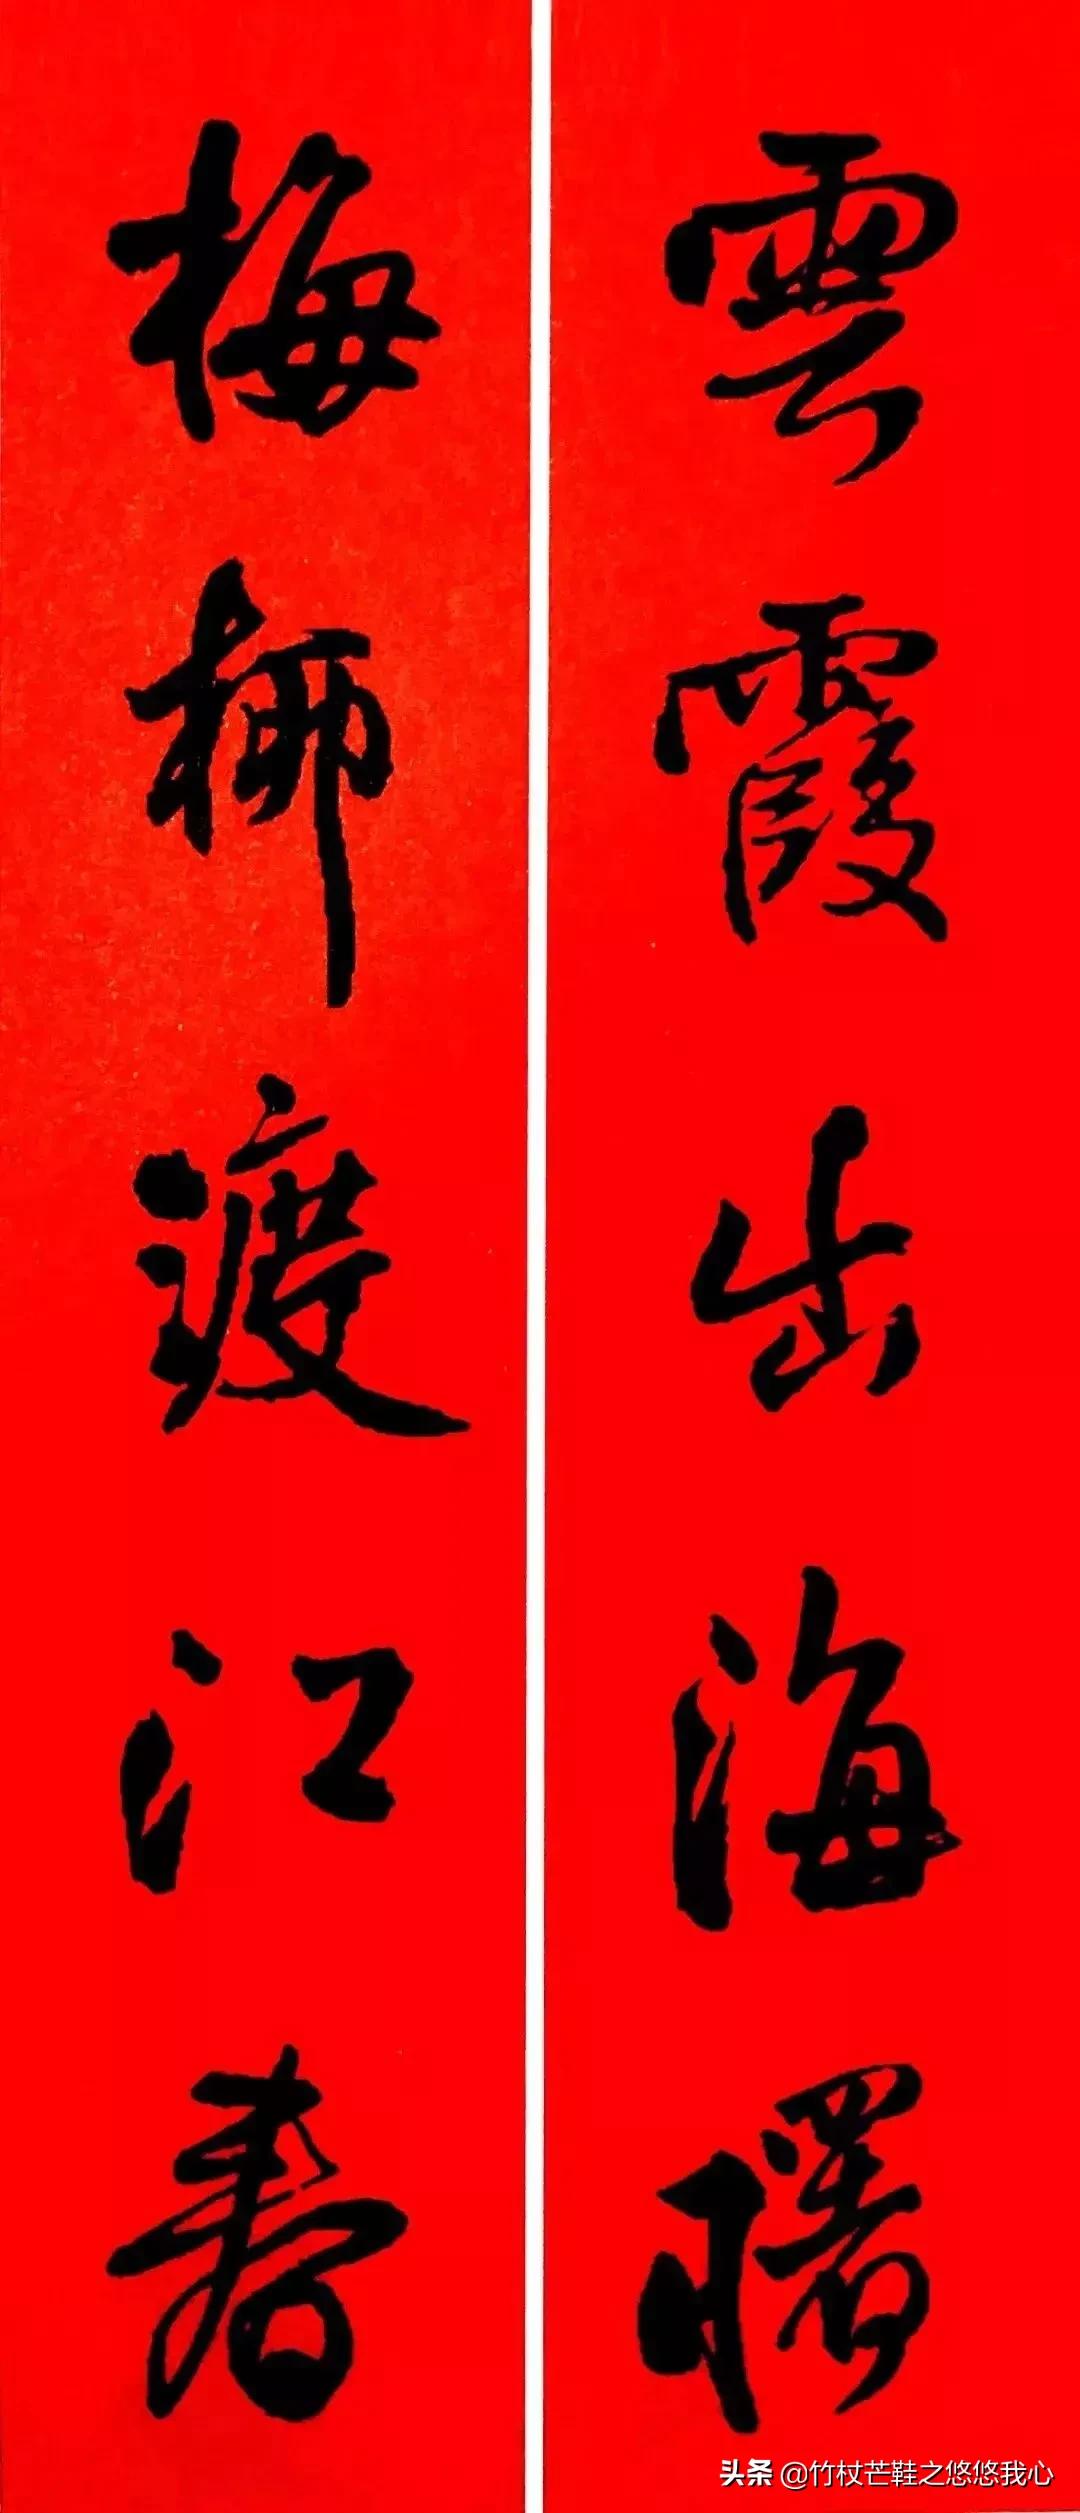 雲霞出海曙
梅柳渡江春
头条 @竹杖芒鞋之悠悠我心